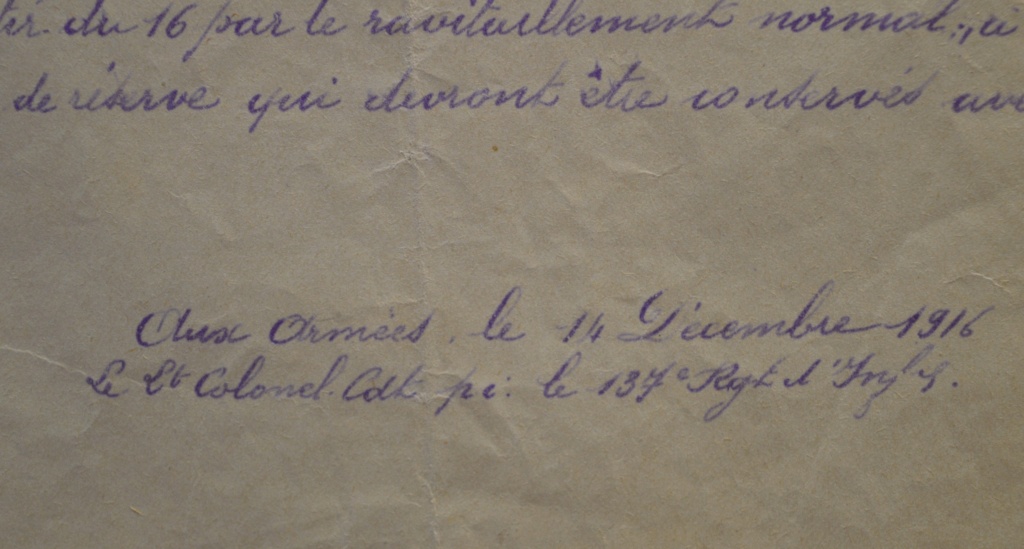 du 16 par le ravitaillement normal,
de réserve qui devront être conservés
Aux Armées, le 14 Décembre 1916
Le Lt Colonel Cdt p.i. le 137e Rgt d'Inf